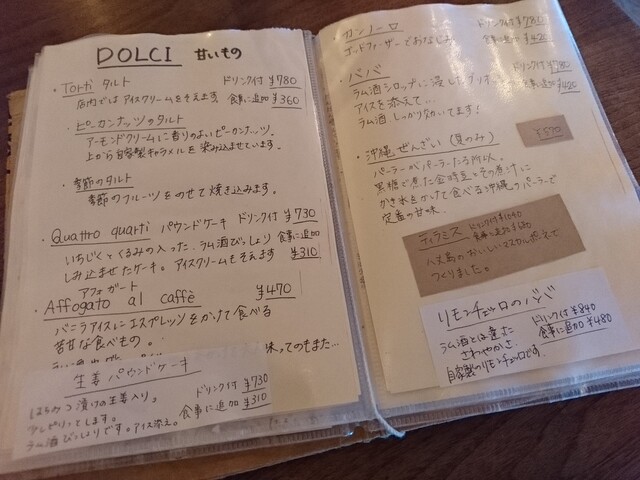 DOLCI 甘いもの
・Torti タルト ドリンク付 ¥780
店内では アイスクリームをそえます 食事に追加 ¥360
・ピーカンナッツのタルト
アーモンドクリームに香りのよいピーカンナッツ。
上から自家製キャラメルを染み込ませています。
・季節のタルト
季節のフルーツをのせて焼き込みます。
・Quattro quarti パウンドケーキ ドリンク付 ¥730
いちじくとくるみの入った、ラム酒びっしょり 食事に追加 ¥310
しみ込ませたケーキ。アイスクリームもそえます
アフォガート
・Affogato al caffè ¥470
バニラアイスにエスプレッソをかけて食べる
苦甘な食べもの。
味ってのもまた…
生姜 パウンドケーキ
ドリンク付 ¥730
はちみつ漬けの生姜入り。
食事に追加 ¥310
少しピリッとします。
ラム酒びっしょりです。アイス添え。
・カンノーロ ドリンク付 ¥780
ゴッドファーザーでおなじみ 食事に追加 ¥420
・ババ ドリンク付 ¥780
ラム酒シロップに浸したブリオ 食事に追加 ¥420
アイスを添えて…
ラム酒しっかりきいてます!
・沖縄ぜんざい (夏のみ)
¥570
パーラーがパーラーたる所以。
黒糖で煮た金時豆とその煮汁に
かき氷をかけて食べる沖縄のパーラーで
定番の甘味。
ティラミス ドリンク付 ¥1040
食事に追加 ¥680
八丈島のおいしいマスカルポーネで
つくりました。
リモンチェッロのババ
ドリンク付 ¥840
ラム酒とは違った 食事に追加 ¥480
さわやかさ
自家製のリモンチェッロです。